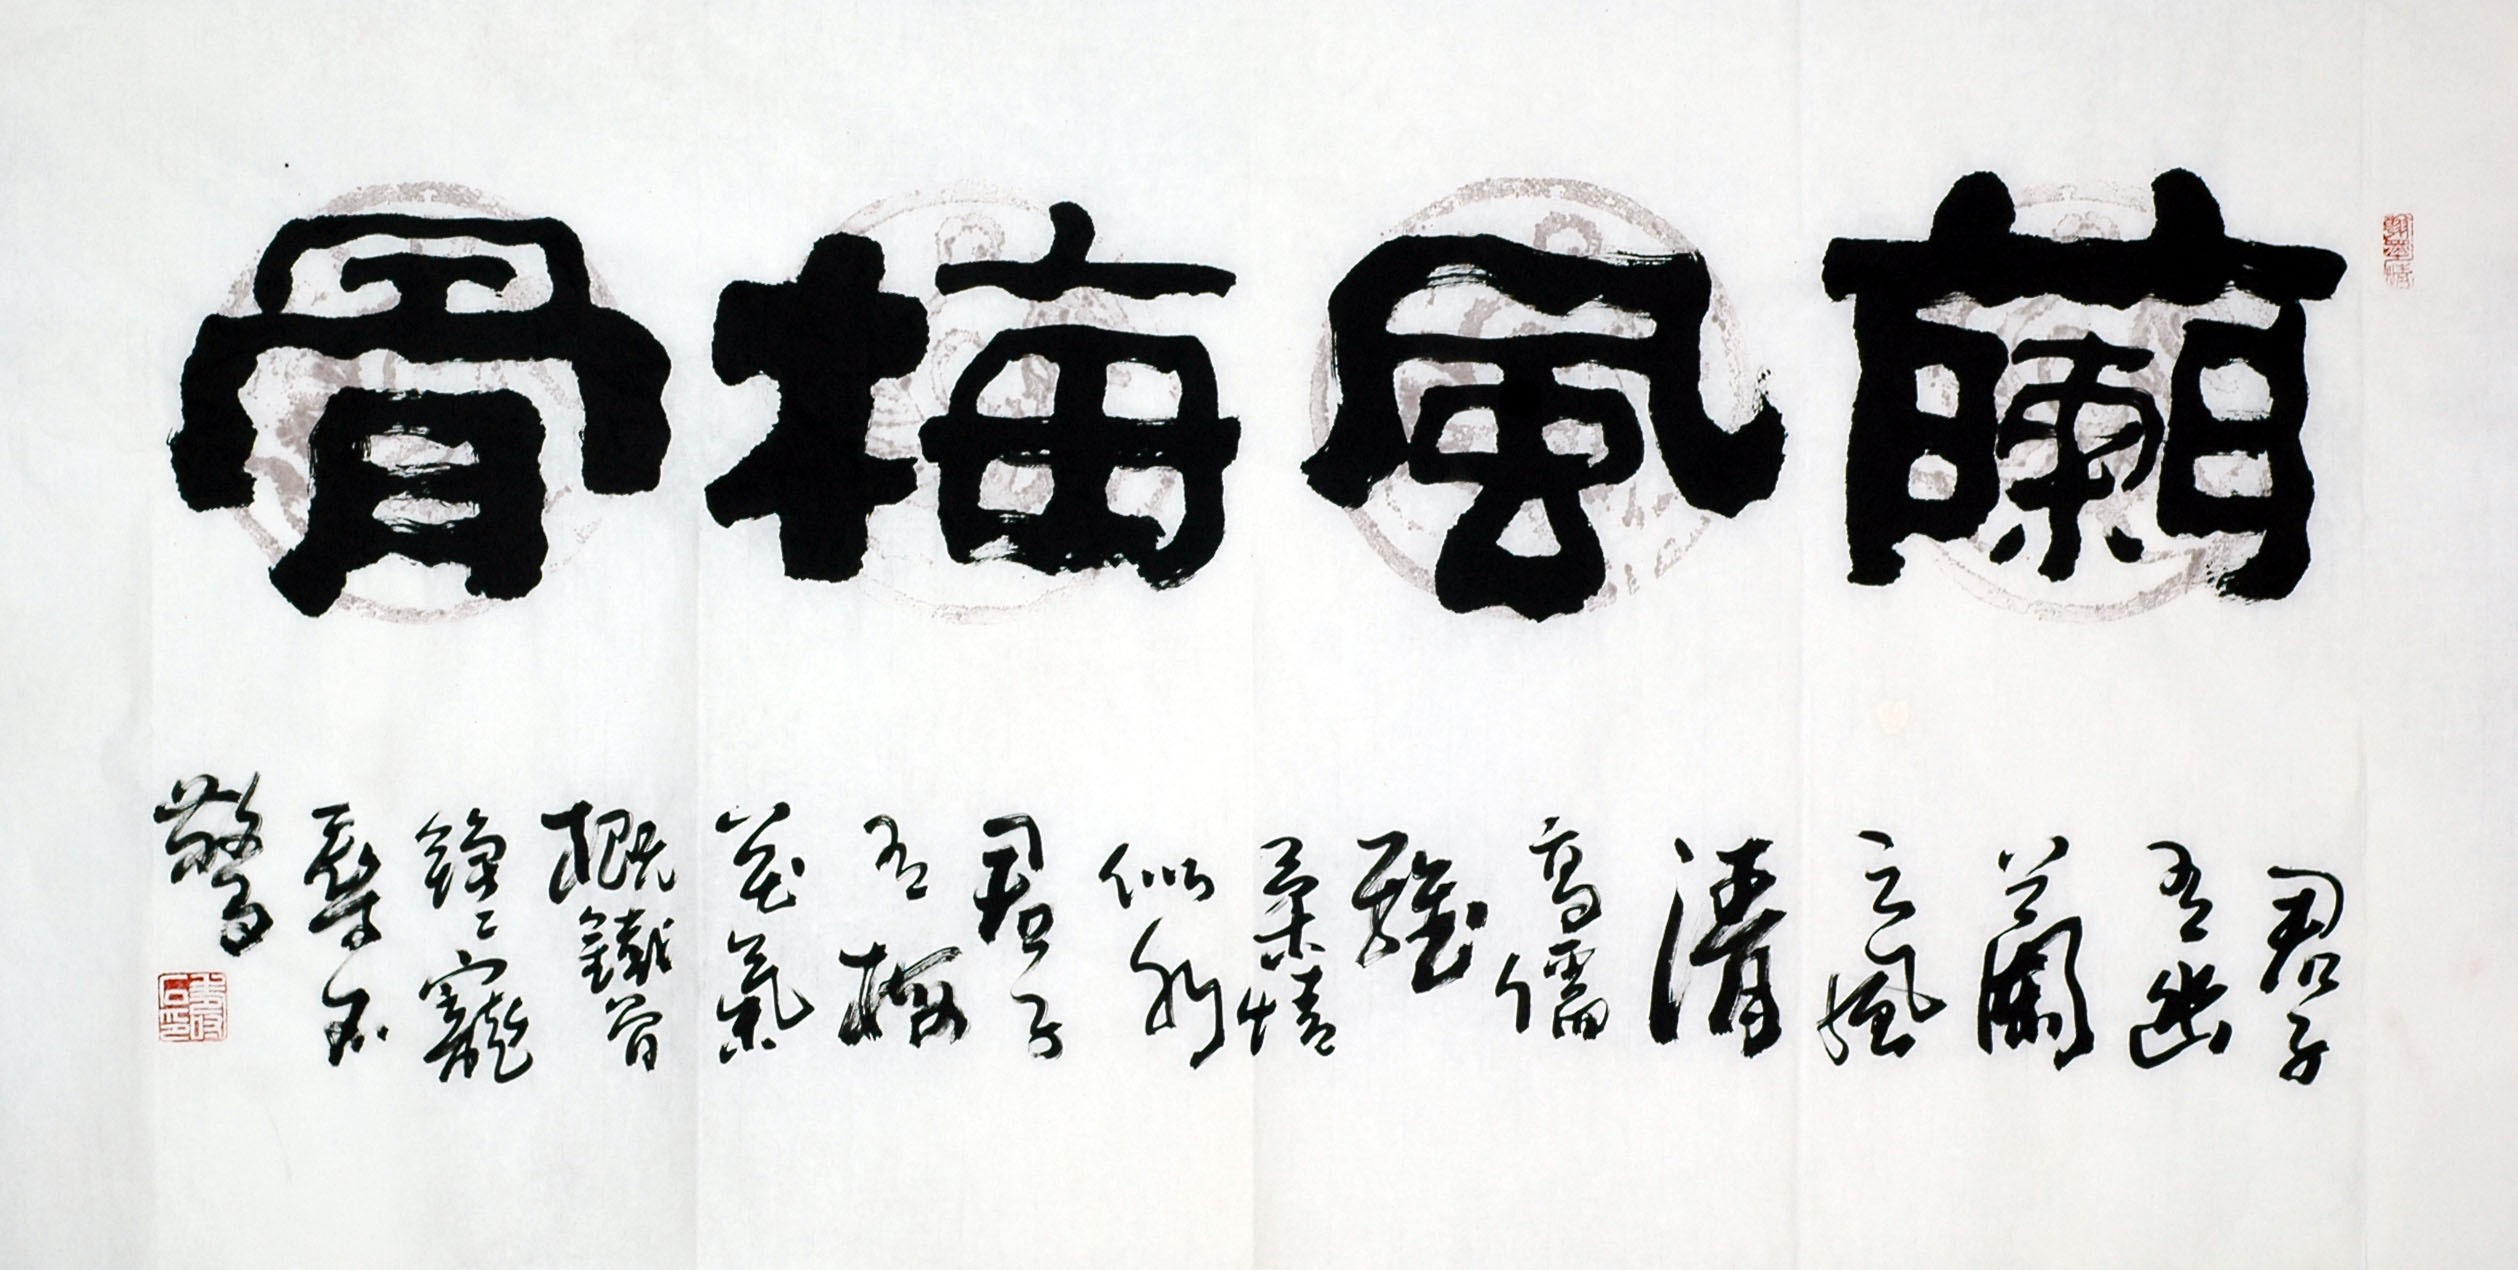 蘭風梅骨
君子
有幽
蘭
之風
清
高儒
雅
柔情
似水
君子
有梅
花氣
概鐵骨
錚々寵
辱不
驚